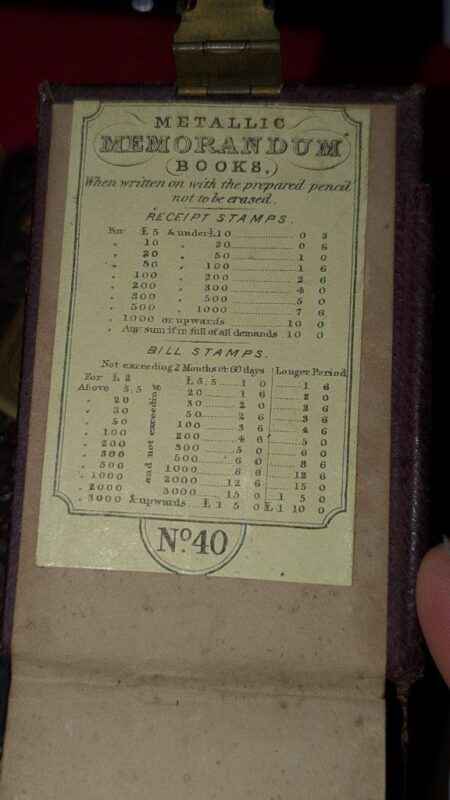 METALLIC
MEMORANDUM
BOOKS,
When written on with the prepared pencil
not to be erased.
RECEIPT STAMPS.
For £5 & under £10 0 3
" 10 " 20 0 6
" 20 " 50 1 0
" 50 " 100 1 6
" 100 " 200 2 6
" 200 " 300 4 0
" 300 " 500 5 0
" 500 " 1000 7 6
" 1000 or upwards 10 0
" Any sum if in full of all demands 10 0
BILL STAMPS.
Not exceeding 2 Months or 60 days Longer Period
For £2 and not exceeding £5,5 1 0 1 6
Above 5,5 20 1 6 2 0
" 20 30 2 0 2 6
" 30 50 2 6 3 6
" 50 100 3 6 4 6
" 100 200 4 6 5 0
" 200 300 5 0 6 0
" 300 500 6 0 8 6
" 500 1000 8 6 12 6
" 1000 2000 12 6 15 0
" 2000 3000 15 0 1 5 0
" 3000 & upwards £1 5 0 £1 10 0
No. 40